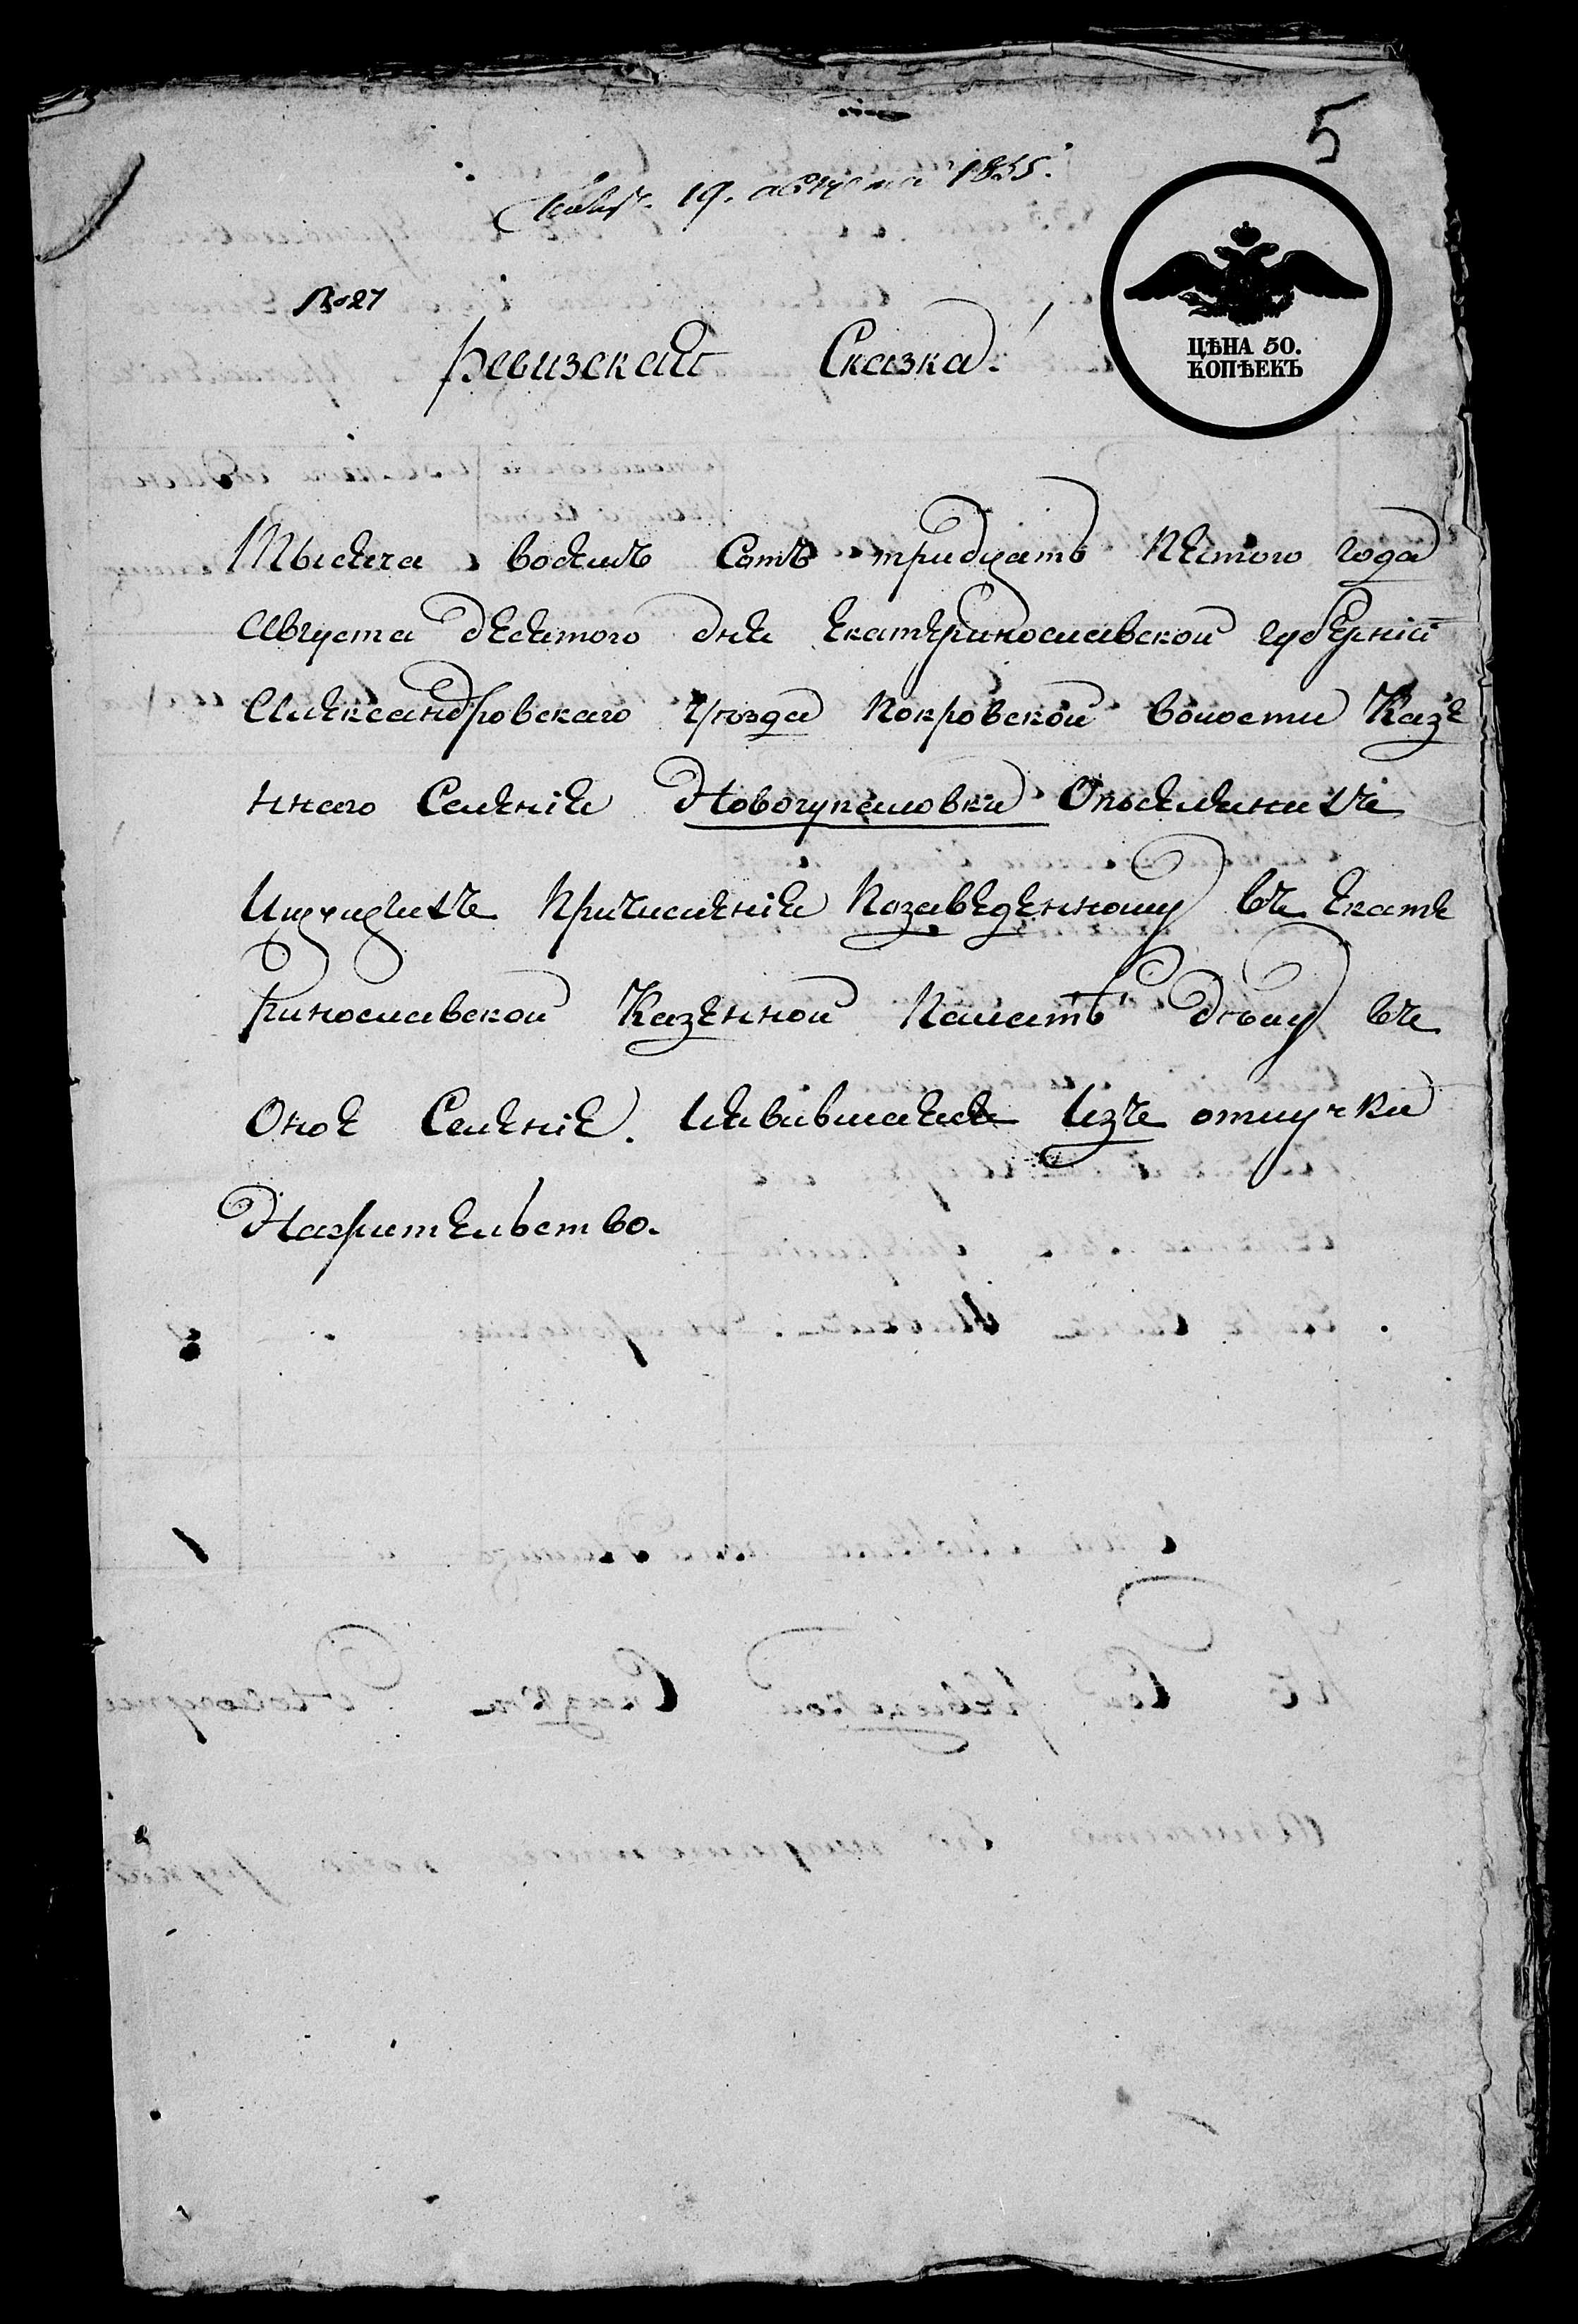 5
19. августа 1835.
№ 27
ЦѢНА 50.
КОПѢЕКЪ
Ревизская Сказка.
Тысяча восемъ Сотъ тридцать пятого года
Августа десятого дня Екатеринославской губерніи
Александровскаго уѣзда Покровской волости Казе
ннаго Селенія Новогупаловки Опоселянихъ
Ищущихъ Причисленія Позаведенному въ Екате
ринославской Казенной Палатѣ дѣлу въ
Оное Селеніе. Иявившаяся Изъ отлучки
Нажительство.